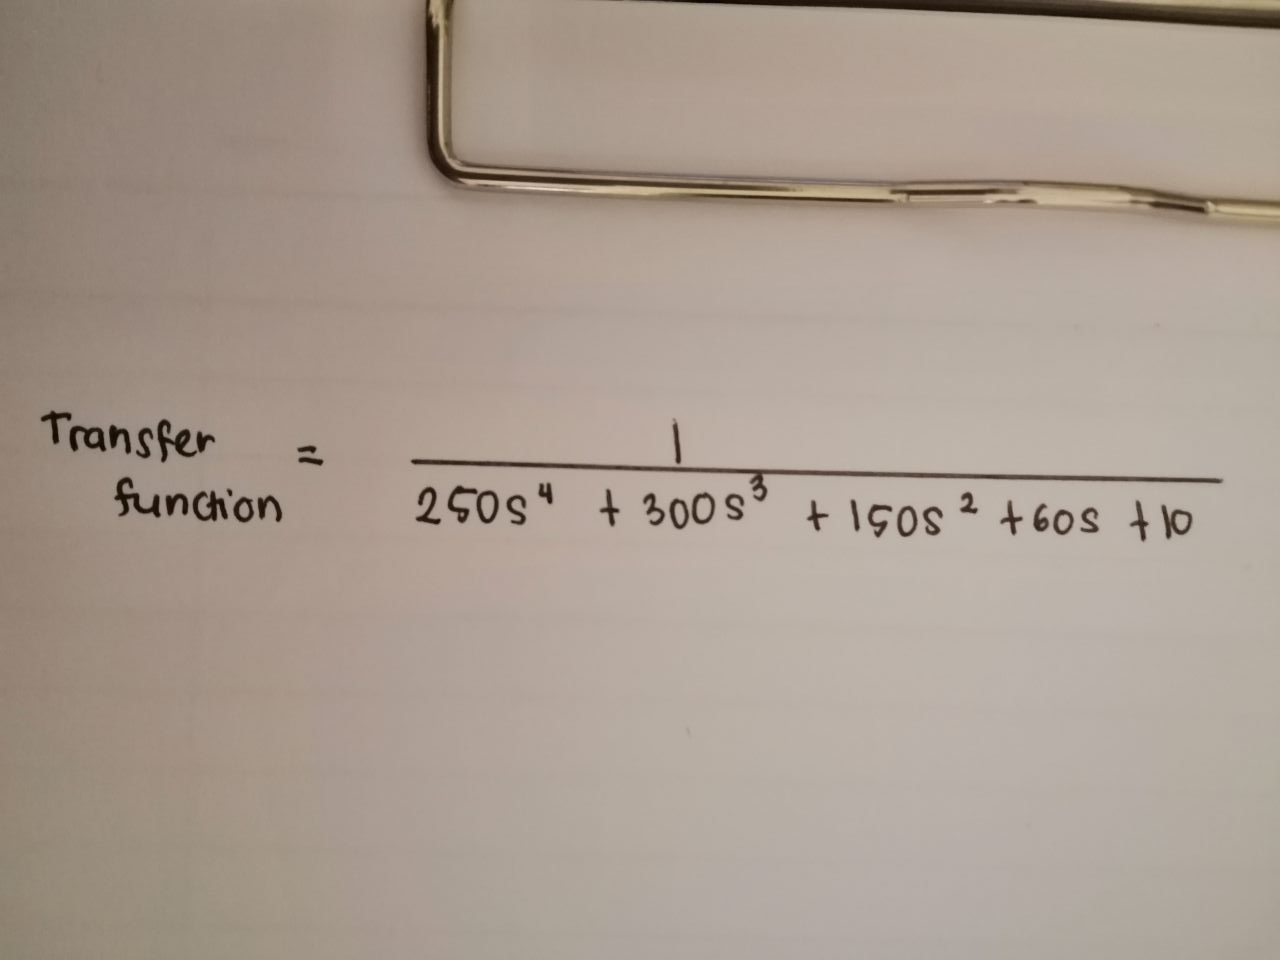 Transfer function = 1
250s⁴ + 300s³ + 150s² + 60s + 10